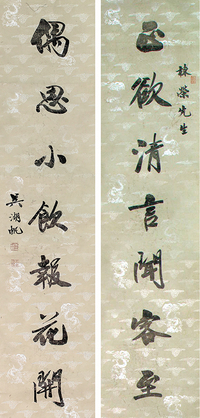 正欲清言聞客至
棟榮先生
偶思小飲報花開
吳湖帆